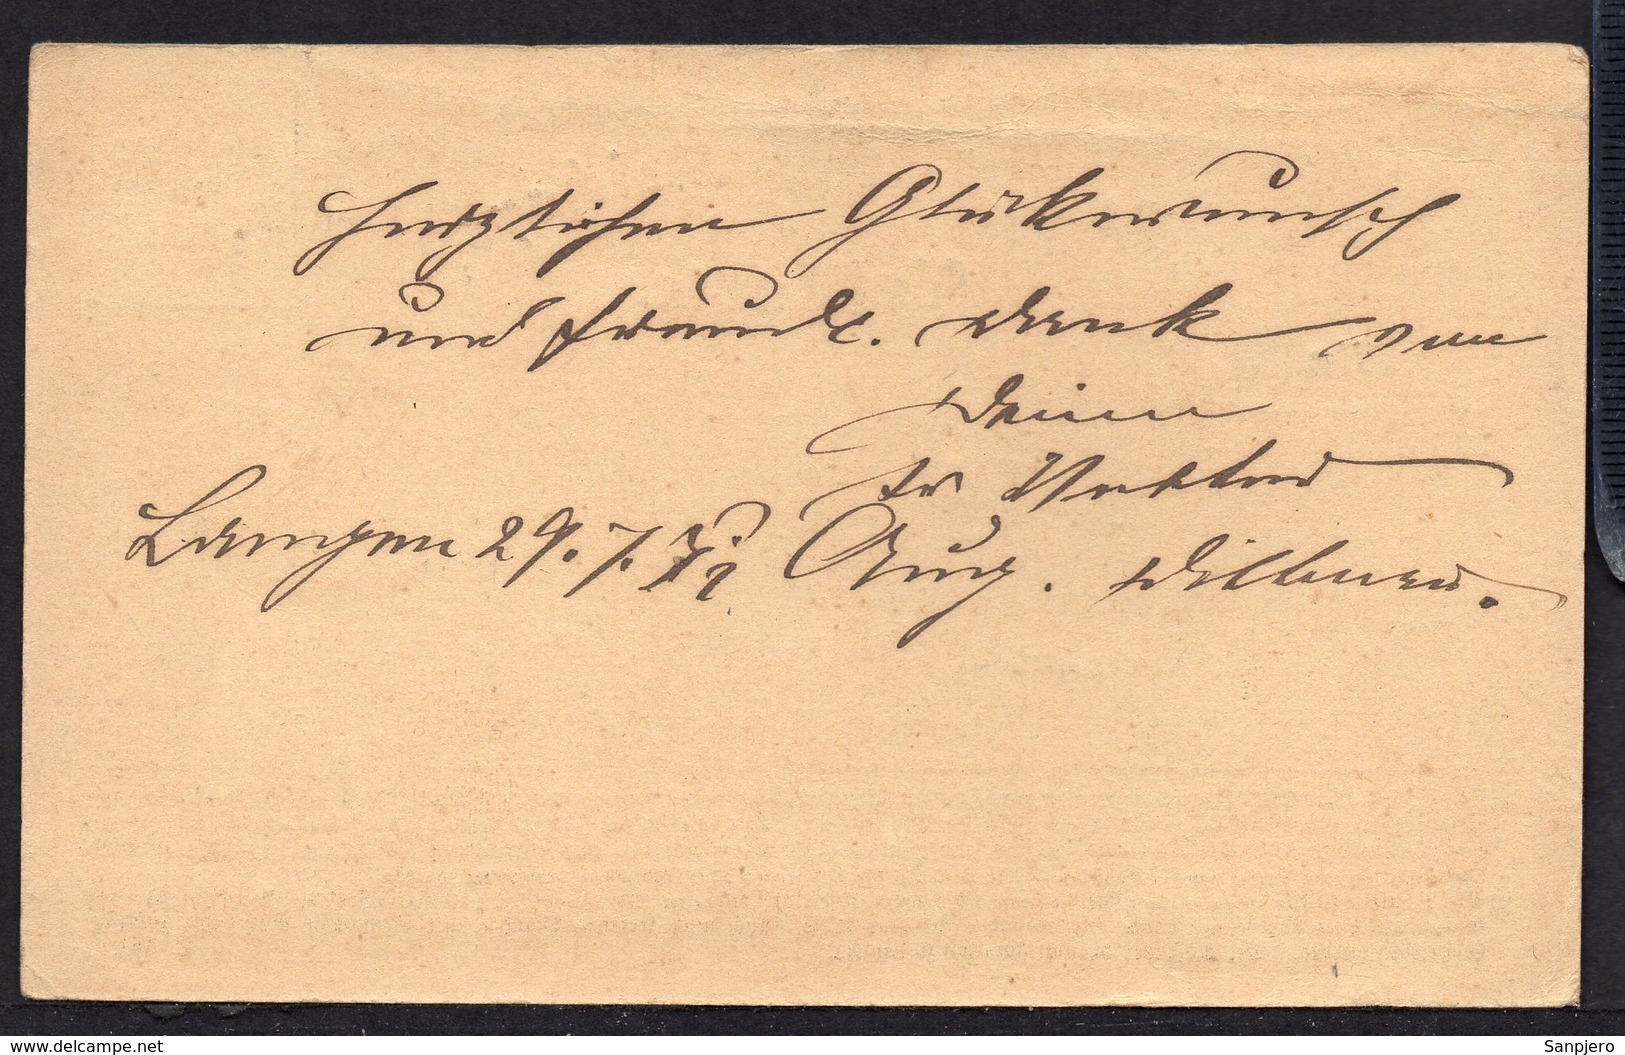 Herzlichen Glückwunsch
und freundl. Dank von
Deinem
Vetter
Langen 29. 7. 72 Aug. Dillmann.
www.delcampe.net
Sanpjero